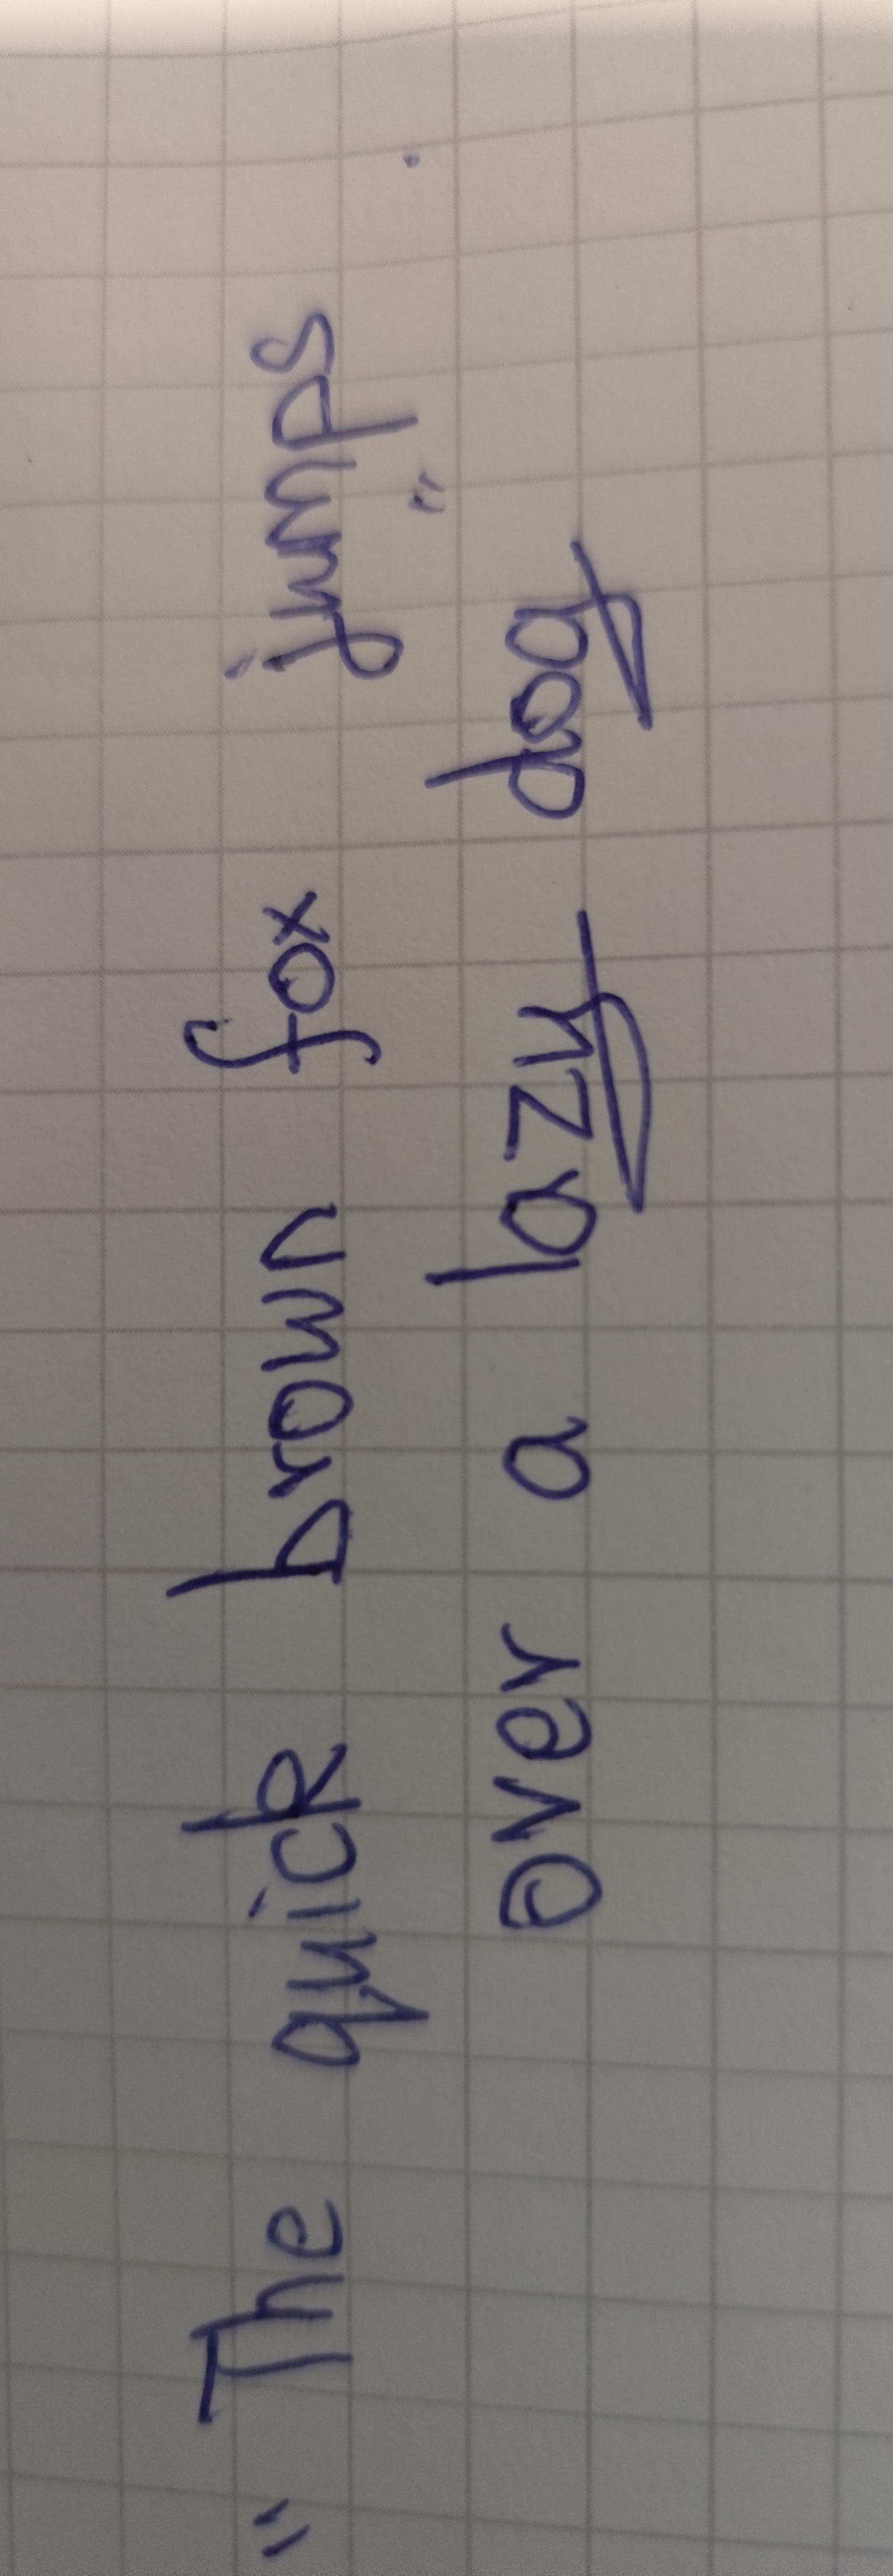 "The quick brown fox jumps
over a lazy dog"